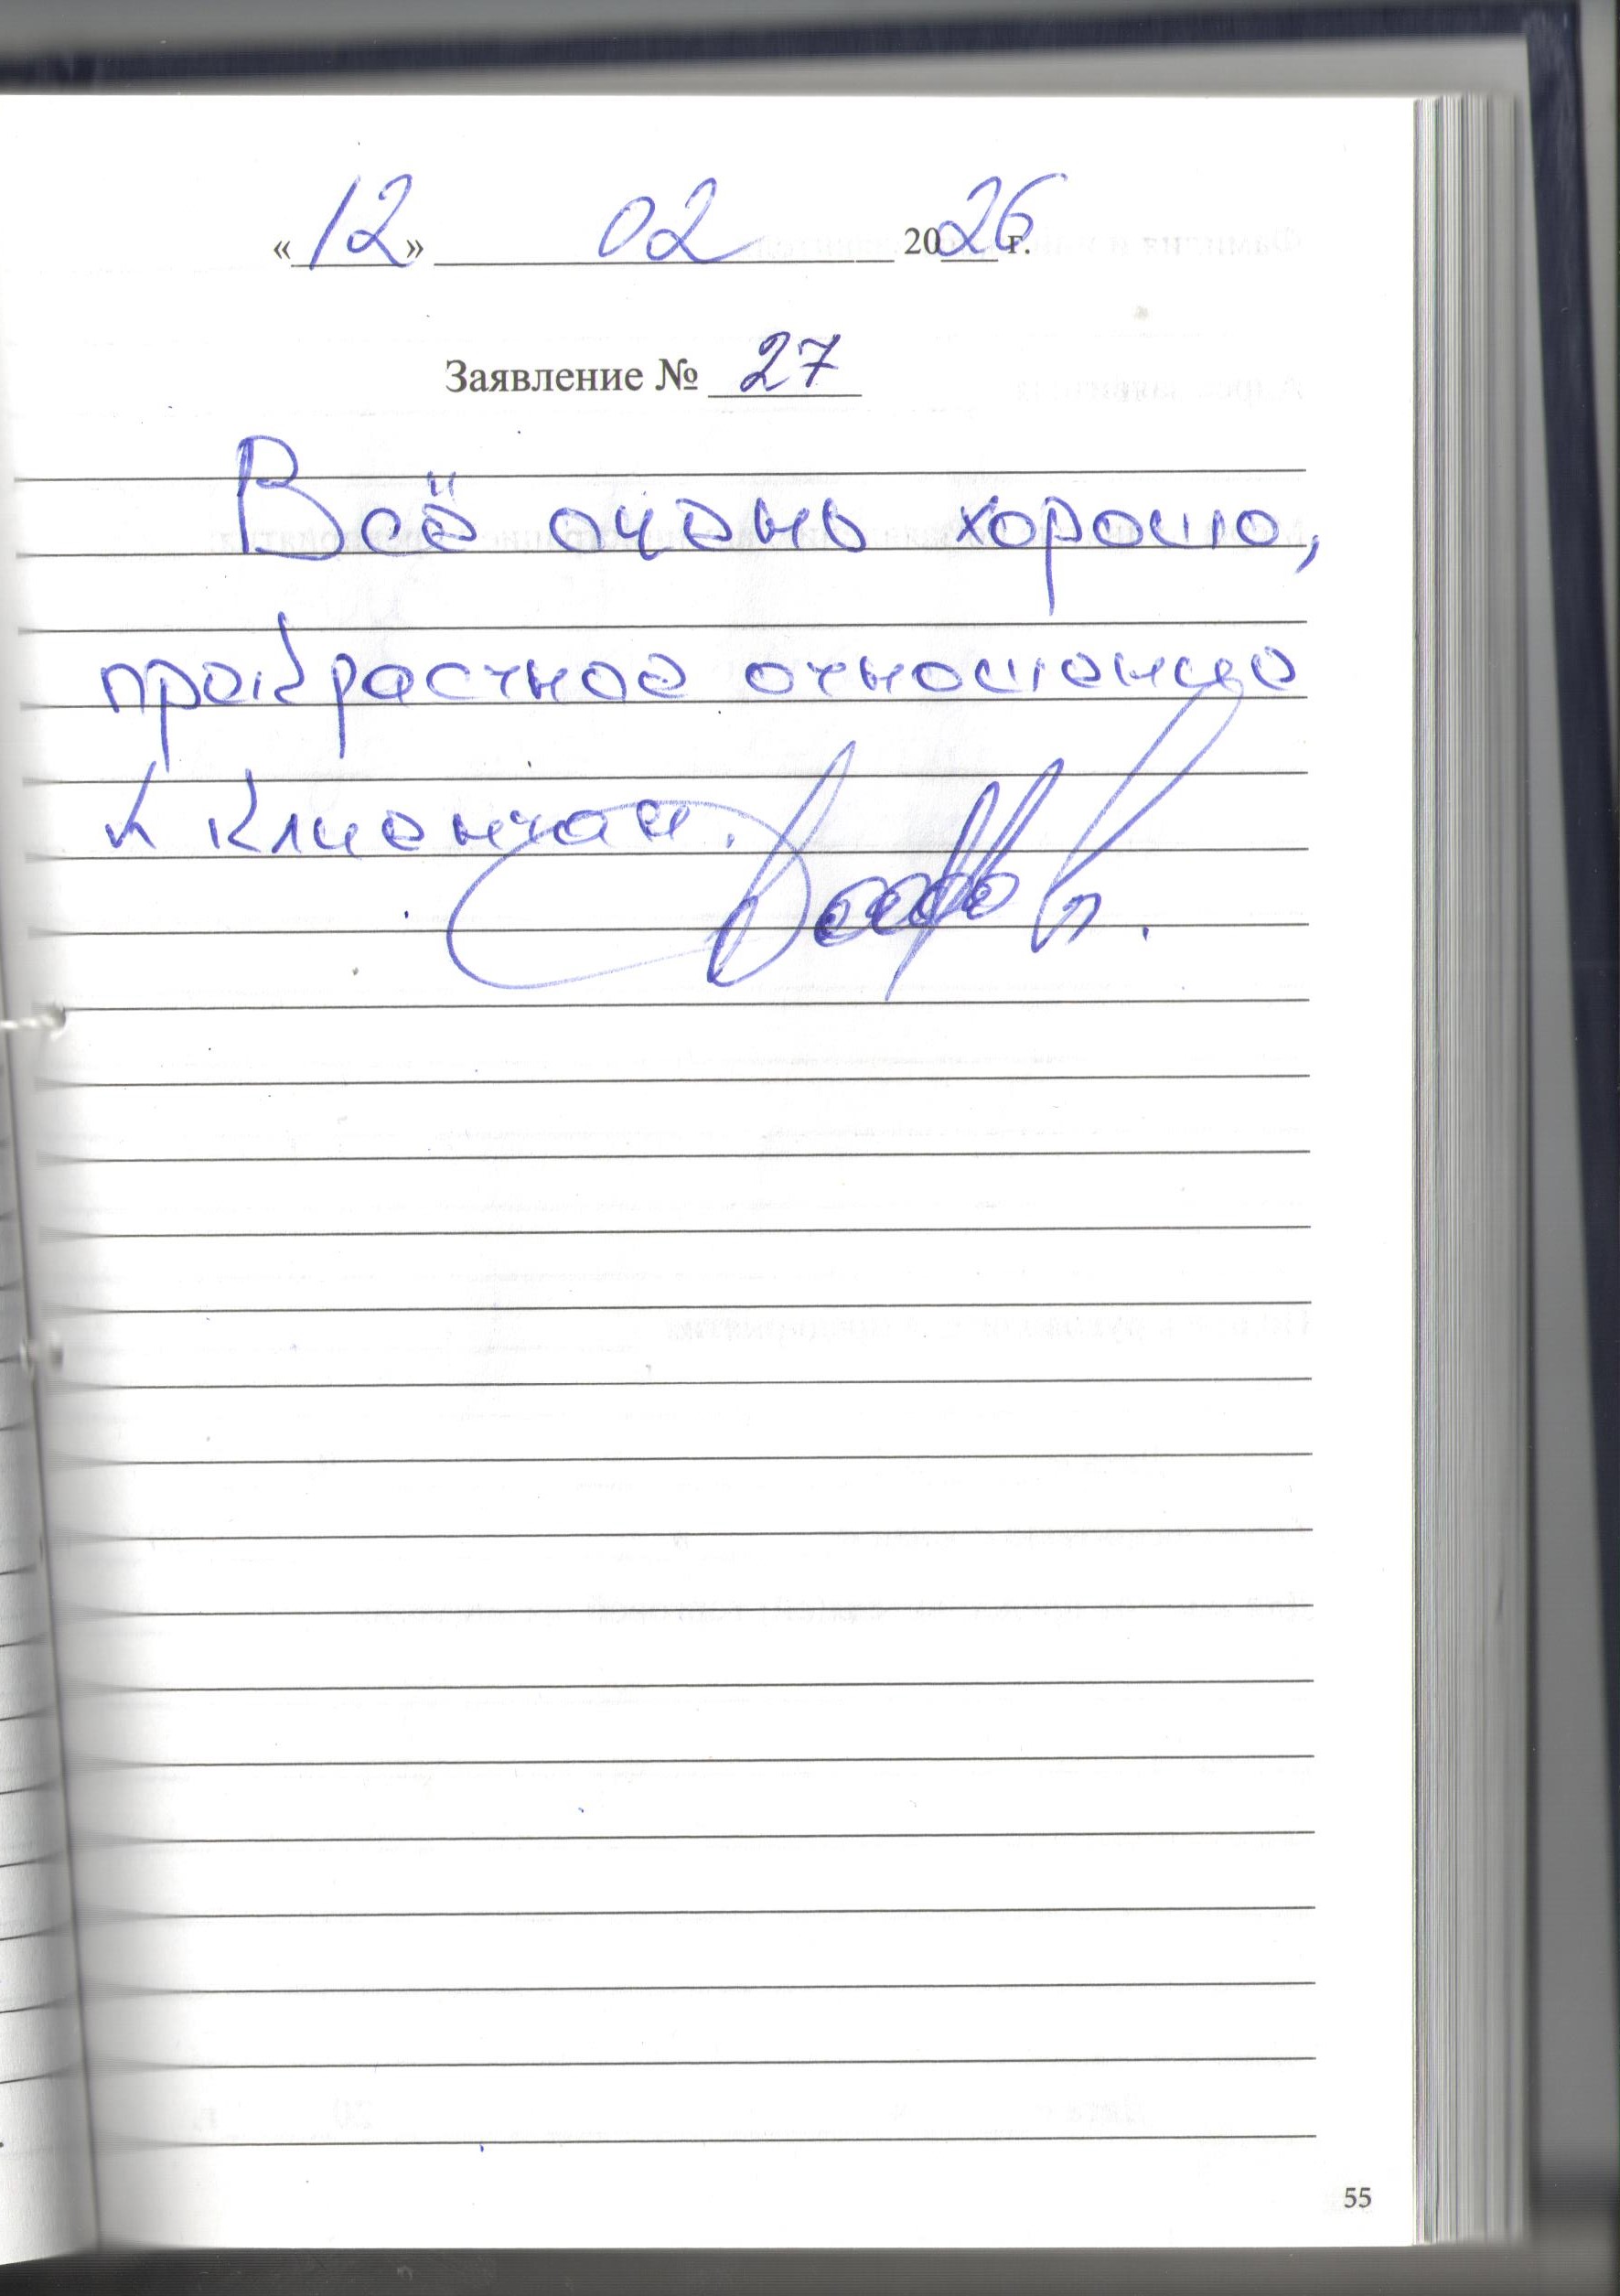 «12» 02 2026 г.
Заявление № 27
Всё очень хорошо,
прекрастное отношение
к клиентам.
55